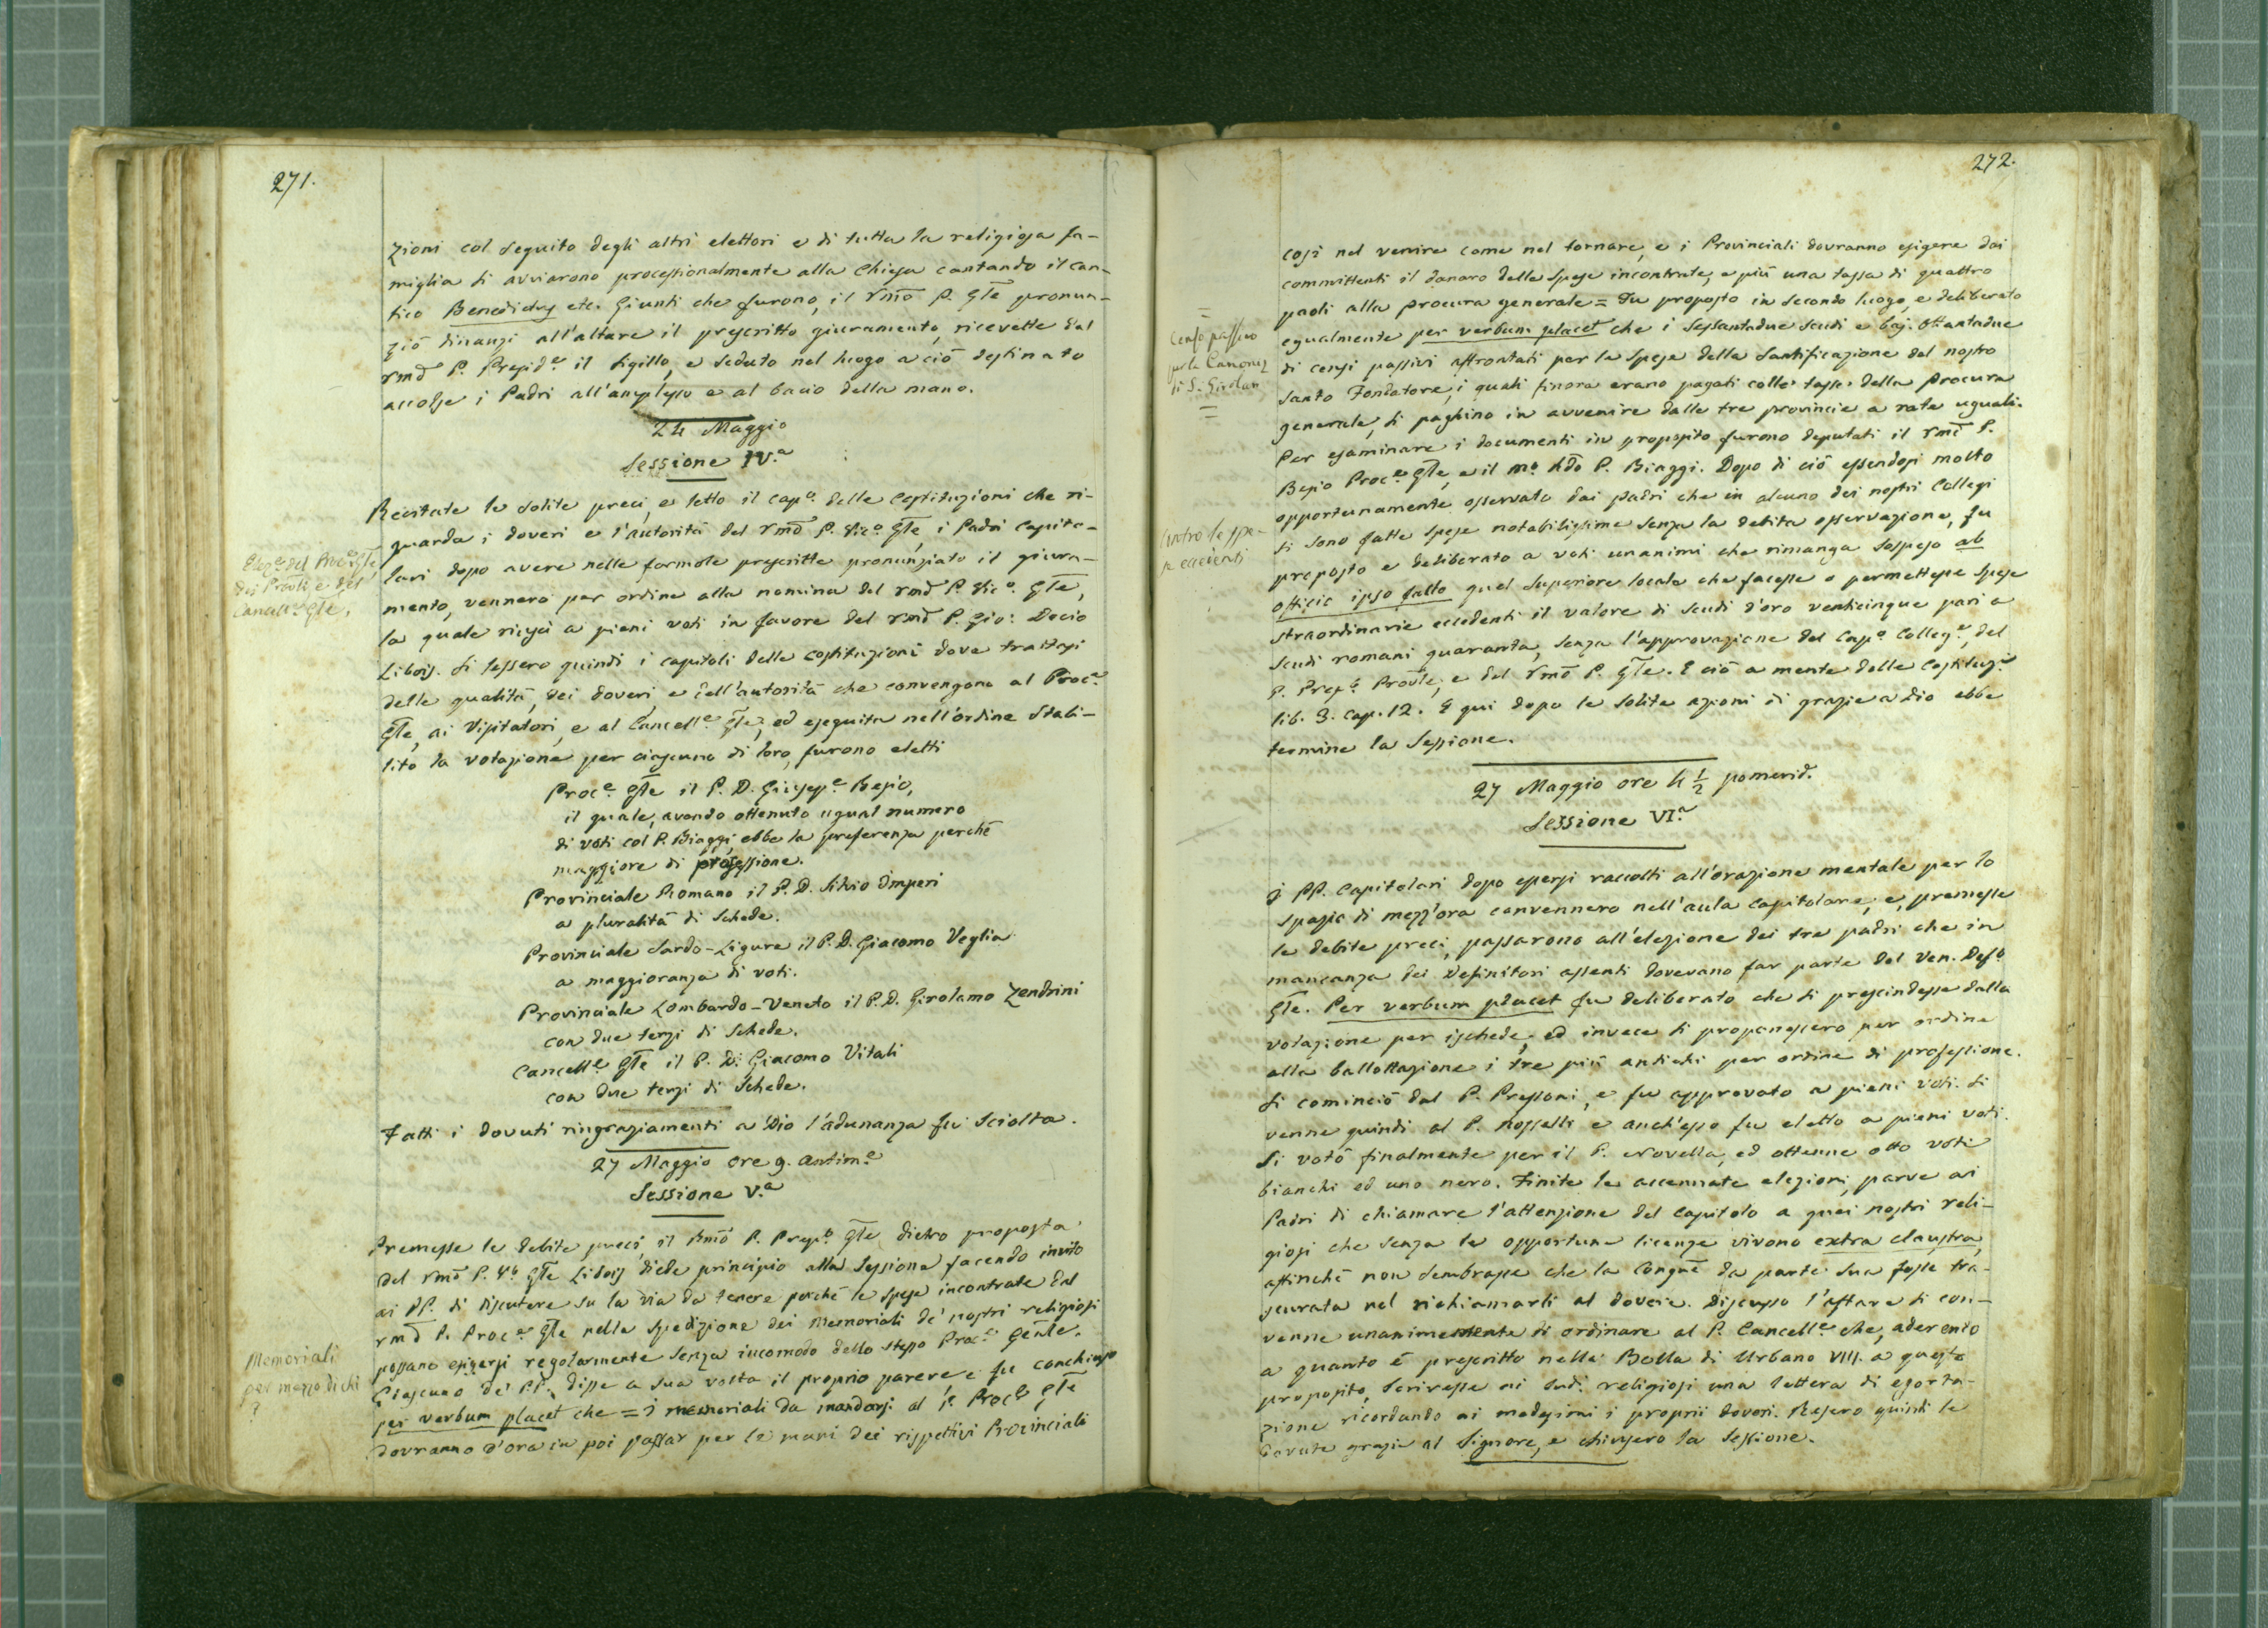 271.
zioni col seguito degli altri elettori e di tutta la religiosa fa-
miglia si avviarono processionalmente alla Chiesa cantando il can-
tico Benedictus etc. Giunti che furono, il Rmõ P. Gl̃e pronun-
ziò dinanzi all'altare il prescritto giuramento, ricevette dal
Rmõ P. Presid.e il sigillo, e seduto nel luogo a ciò destinato
accolse i Padri all'amplesso e al bacio della mano.
24 Maggio
Sessione IV.a
Recitate le solite preci, e letto il cap.o delle Costituzioni che ri-
guarda i doveri e l'autorità del Rmõ P. Vic.o Gl̃e, i Padri Capito-
lari dopo avere nelle formole prescritte pronunziato il giura-
mento, vennero per ordine alla nomina del Rmõ P. Vic.o Gl̃e,
la quale riuscì a pieni voti in favore del Rmõ P. Gio: Decio
Libois. Si lessero quindi i capitoli delle costituzioni dove trattasi
delle qualità, dei doveri, e dell'autorità che convengono al Proc.e
Gl̃e, ai Visitatori, e al Cancell.e Gl̃e, ed eseguita nell'ordine stabi-
lito la votazione per ciascuno di loro, furono eletti
Elez.e del Proc.e Gl̃e
dei Provli e del
Cancell.e Gl̃e.
Proc.e Gl̃e il P. D. Giusepp.e Besio,
il quale, avendo ottenuto ugual numero
di voti col P. Biaggi, ebbe la preferenza perchè
maggiore di professione.
Provinciale Romano il P. D. Silvio Imperi
a pluralità di schede.
Provinciale Sardo-Ligure il P. D. Giacomo Veglia
a maggioranza di voti.
Provinciale Lombardo-Veneto il P. D. Girolamo Zendrini
con due terzi di schede.
Cancell.e Gl̃e il P. D. Giacomo Vitali
con due terzi di schede.
Fatti i dovuti ringraziamenti a Dio l'adunanza fu sciolta.
27 Maggio ore 9. antim.e
Sessione V.a
Premesse le debite preci, il Rmõ P. Prep.o Gl̃e dietro proposta
del Rmõ P. V.o Gl̃e Libois diede principio alla sessione facendo invito
ai PP. di discutere su la via da tenere perchè le spese incontrate dal
Rmõ P. Proc.e Gl̃e nella spedizione dei Memoriali de' nostri religiosi
possano esigersi regolarmente senza incomodo dello stesso Proc.e Genle.
Ciascuno de' PP. disse a sua volta il proprio parere, e fu conchiuso
per verbum placet che = i memoriali da mandarsi al P. Proc.e Gl̃e
dovranno d'ora in poi passar per le mani dei rispettivi Provinciali
Memoriali
per mezzo di chi
?
272.
così nel venire come nel tornare, e i Provinciali dovranno esigere dai
committenti il danaro delle spese incontrate, e più una tassa di quattro
paoli alla procura generale = Fu proposto in secondo luogo, e deliberato
egualmente per verbum placet che i sessantadue scudi e baj. ottantadue
di censi passivi affrontati per le spese della Santificazione del nostro
Santo Fondatore, i quali finora erano pagati colle tasse della procura
generale, si paghino in avvenire dalle tre provincie a rate uguali.
Per esaminare i documenti in proposito furono deputati il Rmõ P.
Besio Proc.e Gl̃e, e il M.o Rdo P. Biaggi. Dopo di ciò essendosi molto
opportunamente osservato dai padri che in alcuno dei nostri Collegi
si sono fatte spese notabilissime senza la debita osservazione, fu
proposto e deliberato a voti unanimi che rimanga sospeso ab
officio ipso facto quel Superiore locale che facesse o permettesse spese
straordinarie eccedenti il valore di scudi d'oro venticinque pari a
scudi romani quaranta, senza l'approvazione del Cap.o Colleg.e, del
P. Prep.o Provle, e del Rmõ P. Gl̃e. E ciò a mente delle Costituz.i
lib. 3. cap. 12. E qui dopo le solite azioni di grazie a Dio ebbe
termine la Sessione.
Censo passivo
per la Canoniz
di S. Girolam
Contro le spe-
se eccedenti
27 Maggio ore 4 1/2 pomerid.
Sessione VI.a
I PP. Capitolari dopo essersi raccolti all'orazione mentale per lo
spazio di mezz'ora convennero nell'aula capitolare, e, premesse
le debite preci, passarono all'elezione dei tre padri che in
mancanza dei Definitori assenti dovevano far parte del Ven. Defo
Gl̃e. Per verbum placet fu deliberato che si prescindesse dalla
votazione per ischede, ed invece si proponessero per ordine
alla ballottazione i tre più antichi per ordine di professione.
Si cominciò dal P. Pressoni, e fu approvato a pieni voti. Si
venne quindi al P. Rosselli e anch'esso fu eletto a pieni voti.
Si votò finalmente per il P. Novella, ed ottenne otto voti
bianchi ed uno nero. Finite le accennate elezioni, parve ai
Padri di chiamare l'attenzione del Capitolo a quei nostri reli-
giosi che senza le opportune licenze vivono extra claustra,
affinchè non sembrasse che la Congñe da parte sua fosse tra-
scurata nel richiamarli al dovere. Discusso l'affare si con-
venne unanimemente di ordinare al P. Cancell.e che, aderendo
a quanto è prescritto nella Bolla di Urbano VIII. a questo
proposito, scrivesse ai sud.i religiosi una lettera di esorta-
zione ricordando ai medesimi i proprii doveri. Resero quindi le
dovute grazie al Signore, e chiusero la sessione.